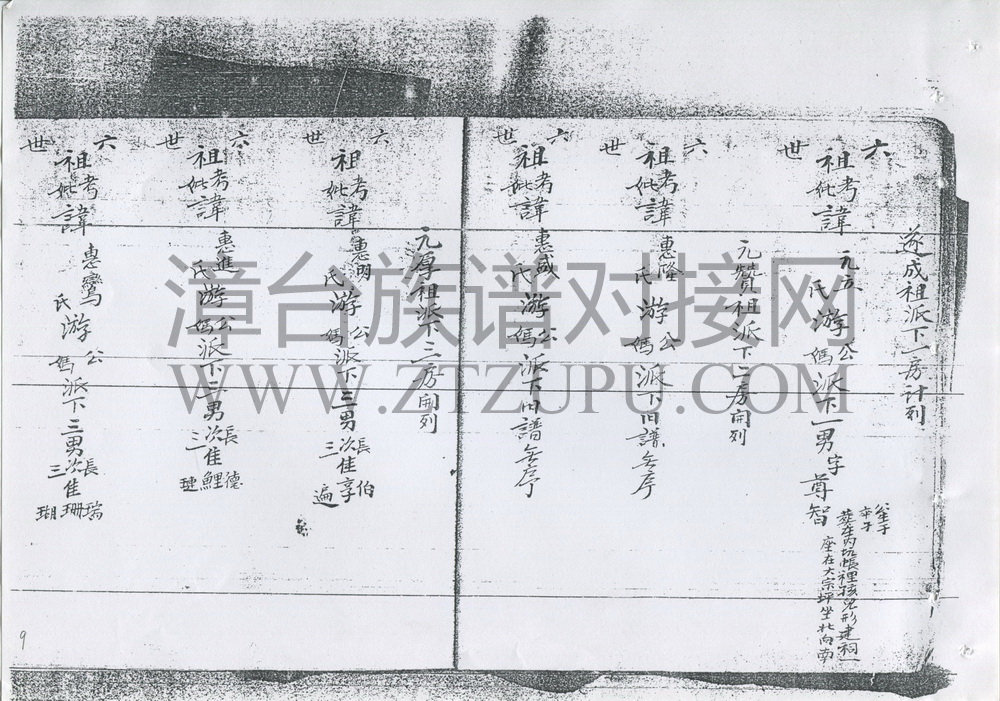 遂成祖派下一房計列
六世
祖考妣諱元五游公氏媽派下一男字尊智
公生于
卒于
葬在內坑帳裡孩兒形建祠一
座在大宗坪坐北向南
元贊祖派下二房開列
六世
祖考妣諱惠隆游公氏媽派下旧譜無序
六世
祖考妣諱惠盛游公氏媽派下旧譜無序
元厚祖派下三房開列
六世
祖考妣諱惠游公氏媽派下三男長次三佳伯享遍
六世
祖考妣諱惠進游公氏媽派下三男長次三佳德鯉璉
六世
祖考妣諱惠鸞游公氏媽派下三男長次三佳瑞珊瑚
9
漳台族谱对接网
WWW.ZTZUPU.COM